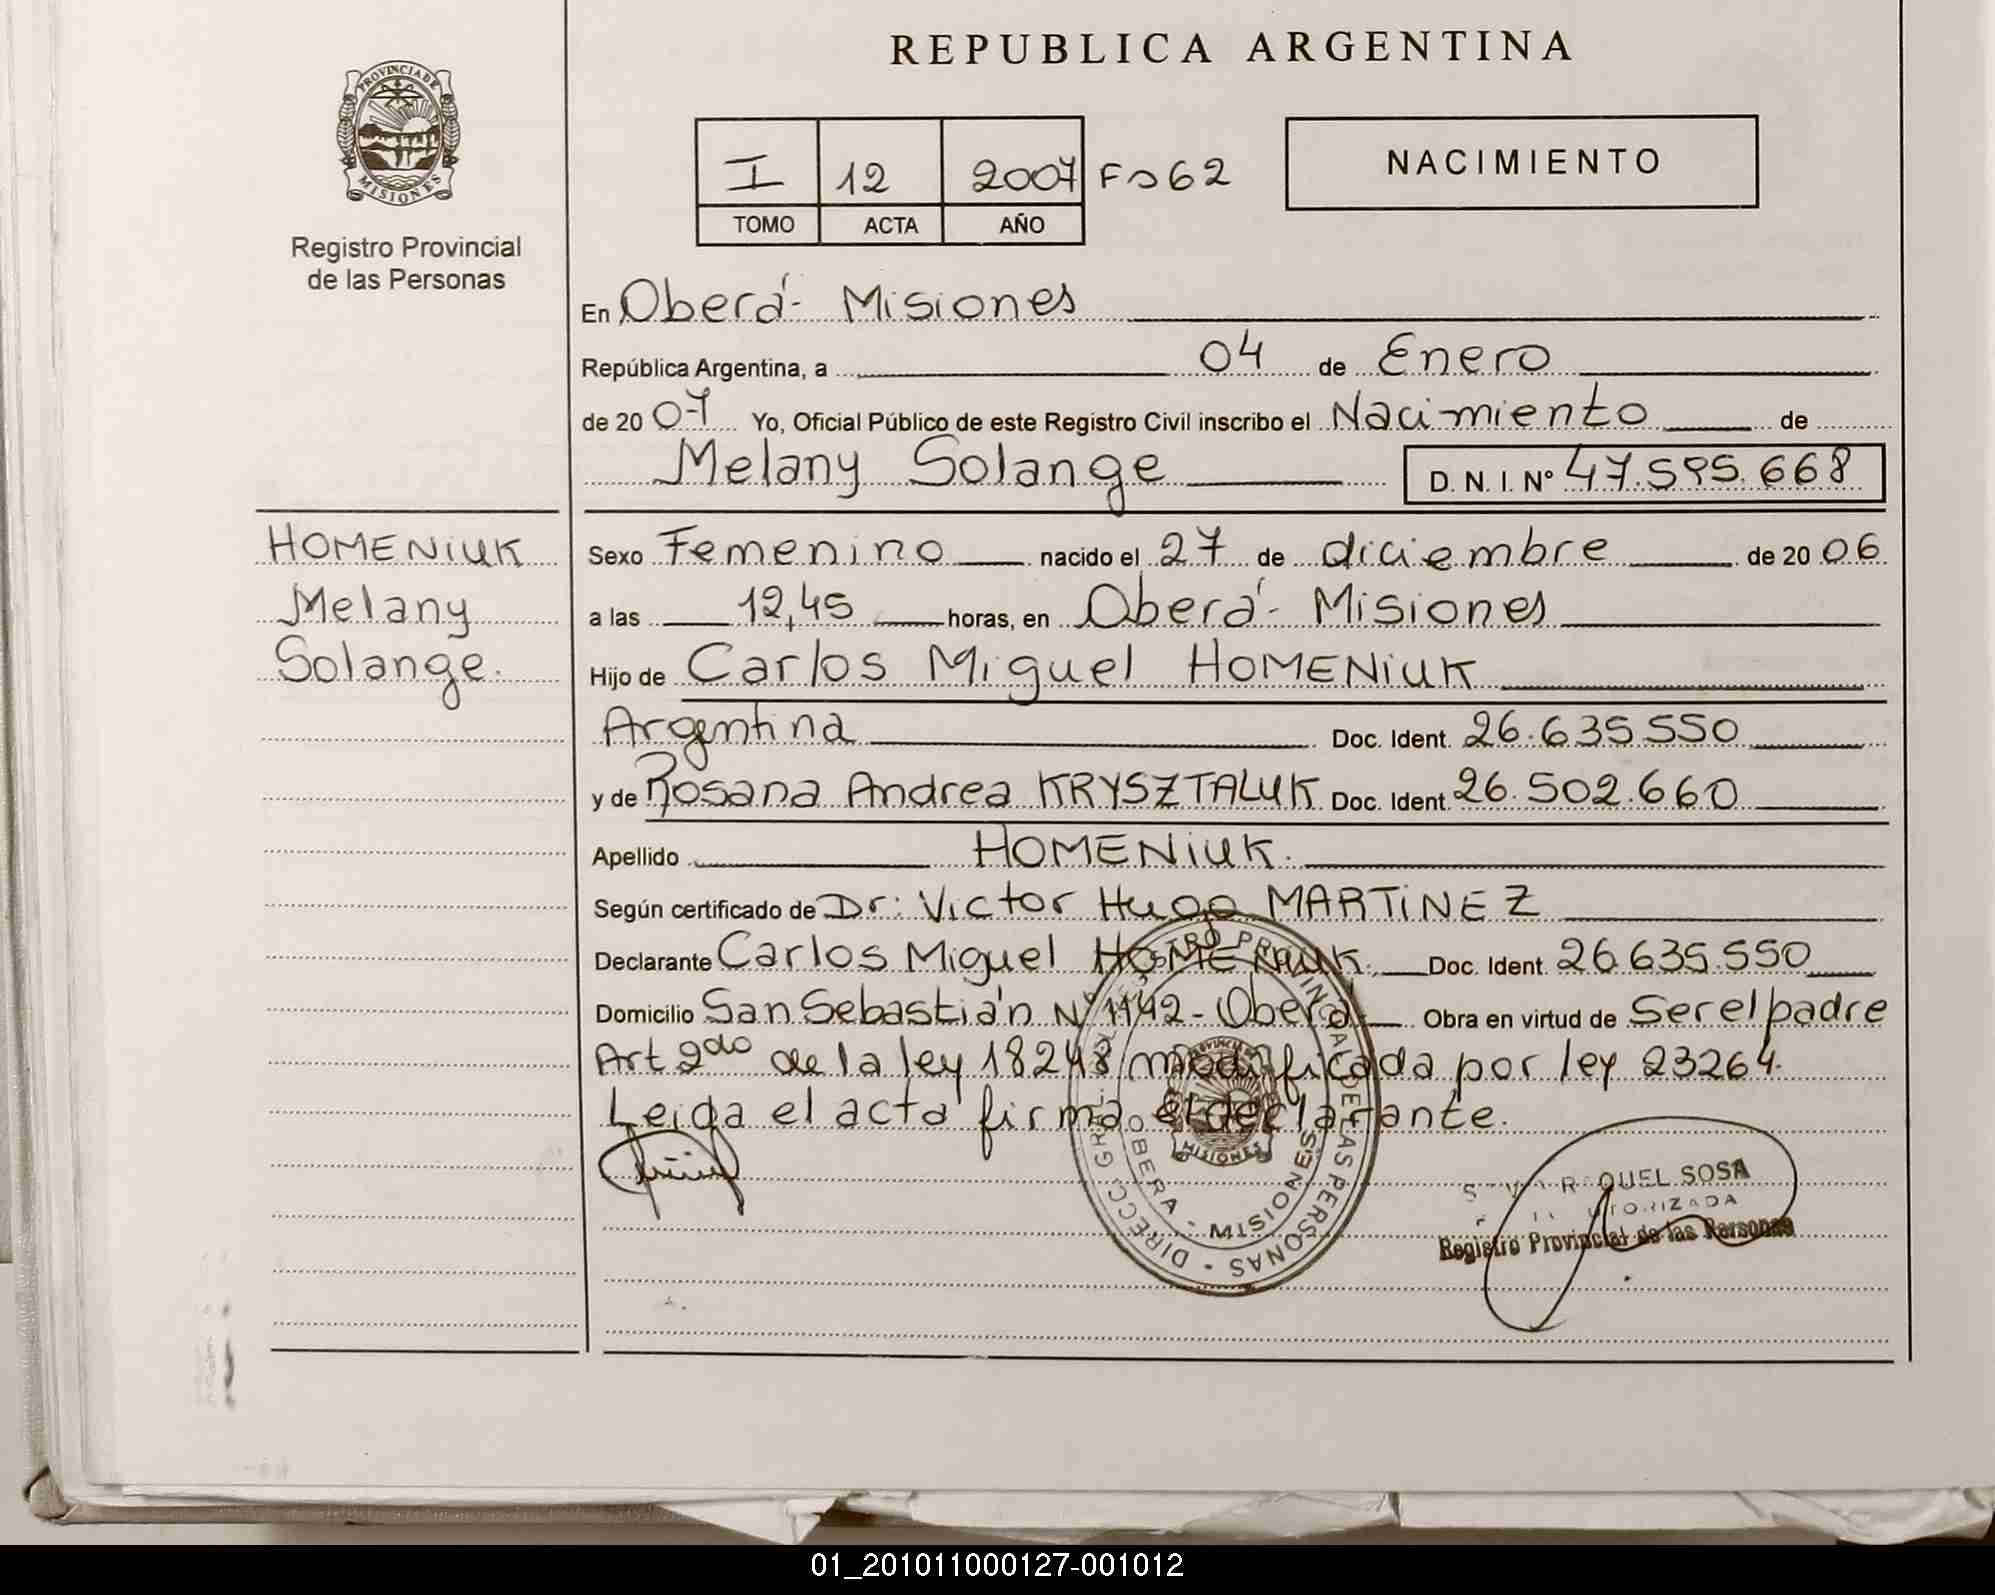 REPUBLICA ARGENTINA
PROVINCIA DE
MISIONES
Registro Provincial
de las Personas
I 12 2007 Fo 62
TOMO ACTA AÑO
NACIMIENTO
En Oberá - Misiones
República Argentina, a 04 de Enero
de 2007 Yo, Oficial Público de este Registro Civil inscribo el Nacimiento de
Melany Solange D. N. I. Nº 47.595.668
HOMENIUK
Melany
Solange.
Sexo Femenino nacido el 27 de diciembre de 2006
a las 12,45 horas, en Oberá - Misiones
Hijo de Carlos Miguel HOMENIUK
Argentina Doc. Ident. 26.635.550
y de Rosana Andrea KRYSZTALUK Doc. Ident. 26.502.660
Apellido HOMENIUK.
Según certificado de Dr: Victor Hugo MARTINEZ
Declarante Carlos Miguel HOMENIUK. Doc. Ident. 26.635.550
Domicilio San Sebastián Nº 1142 - Oberá Obra en virtud de Ser el padre
Art 2do de la ley 18248 modificada por ley 23264.
Leida el acta firma el declarante.
DIRECC. GRAL. REGISTRO PROVINCIAL DE LAS PERSONAS
OBERA - MISIONES
MISIONES
RAQUEL SOSA
AUTORIZADA
Registro Provincial de las Personas
01_201011000127-001012